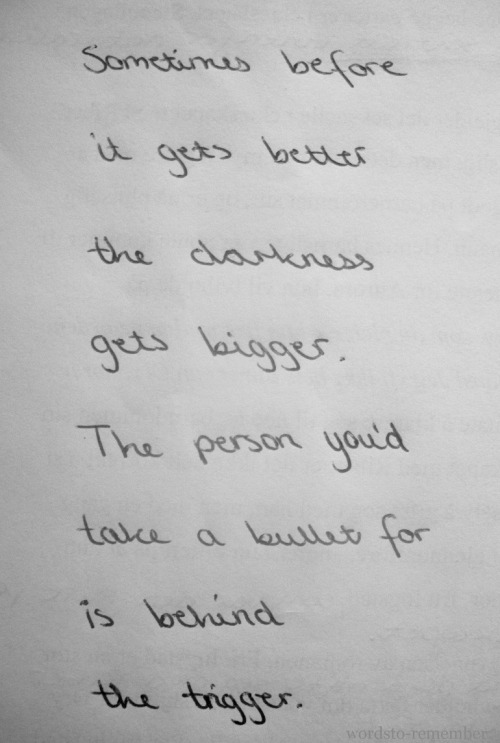 Sometimes before
it gets better
the darkness
gets bigger.
The person you'd
take a bullet for
is behind
the trigger.
wordsto-remember